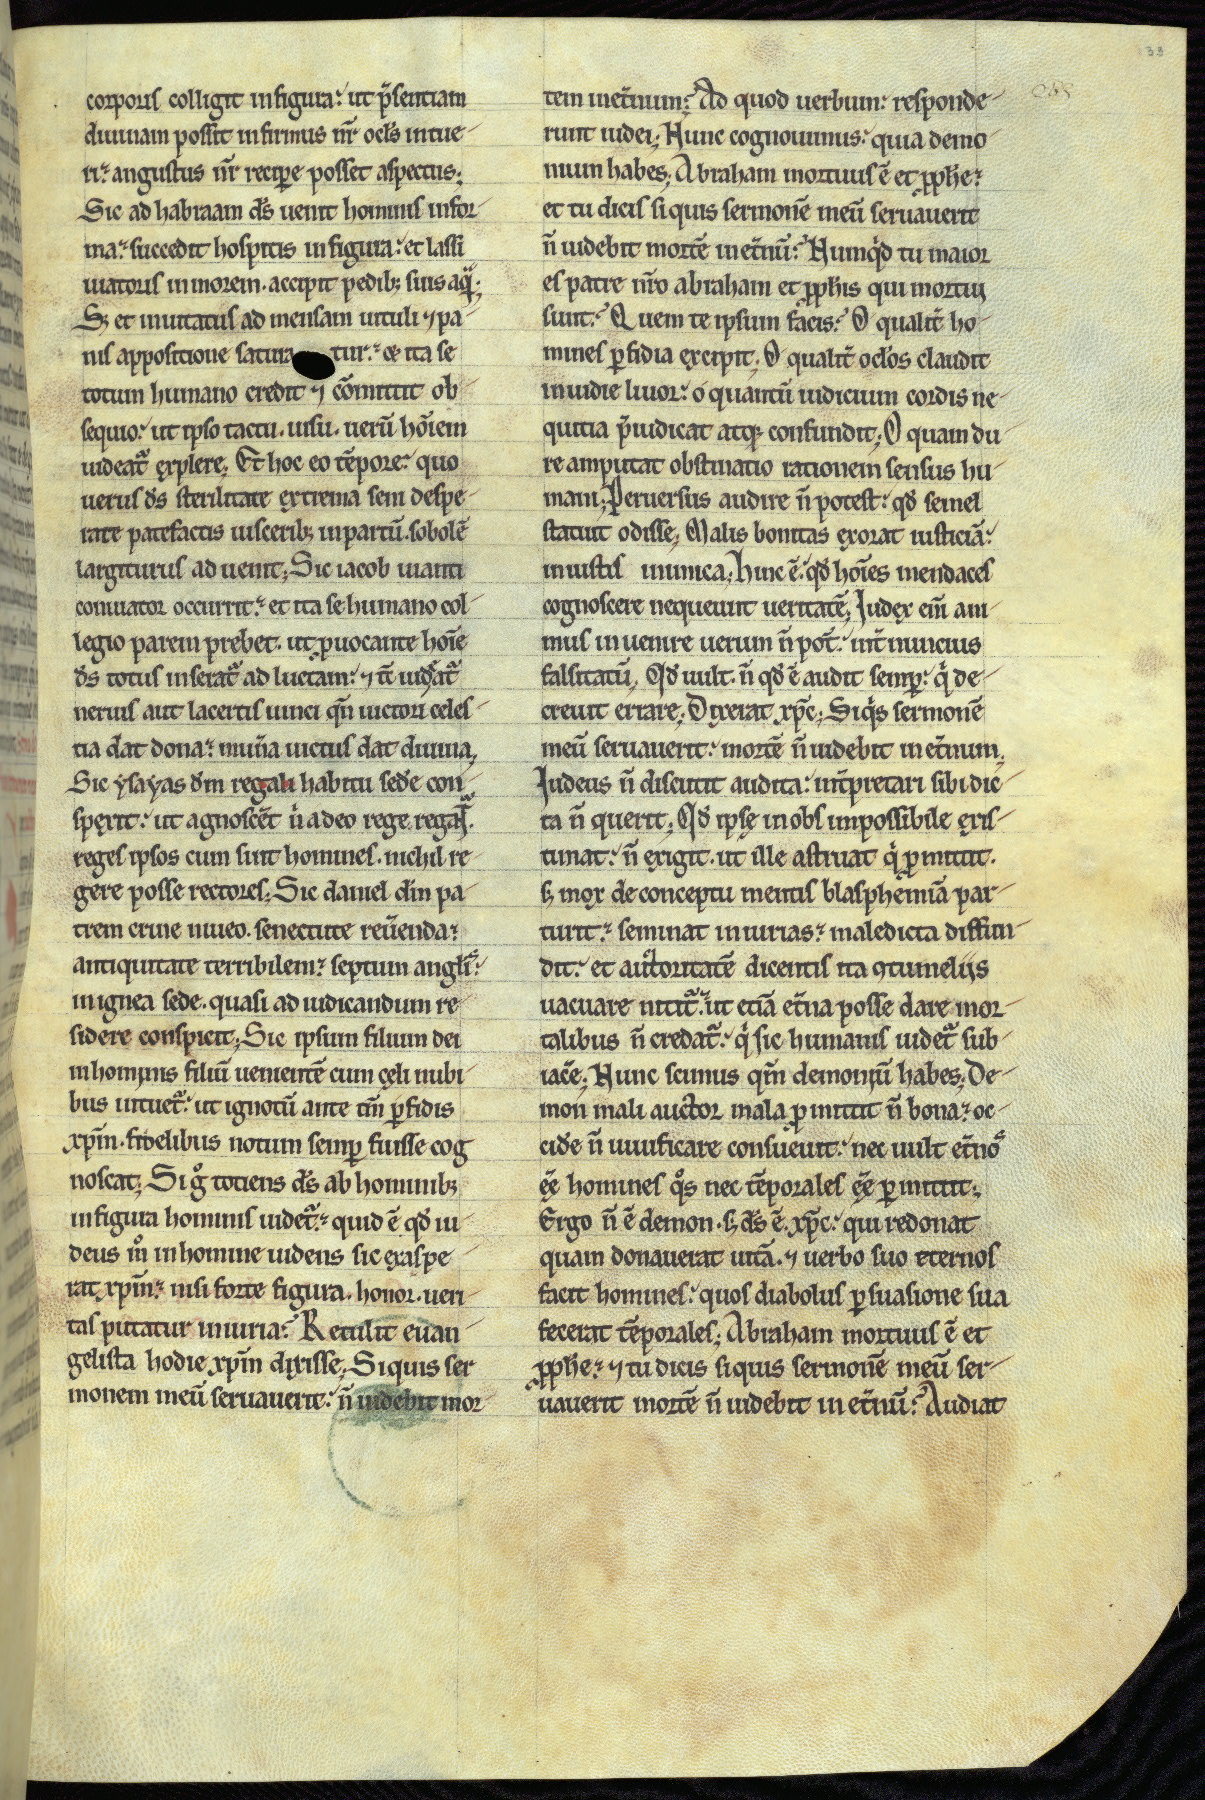 33
corporis colligit in figura: ut p̄sentiam
diuinam possit infirmus nr̄ ocl̄s intue-
ri: angustus nr̄ recip̲e posset aspectus;
Sic ad habraam dS̄ uenit hominis infor-
ma: succedit hospitis in figura: et lassi
uiatoris in morem. accipit pedib; suis aq̄;
S; et inuitatus ad mensam uituli ⁊ pa-
nis appositione satura tur: & ita se
totum humano credit ⁊ cōmittit ob-
sequio: ut ipso tactu. uisu. uerū hōiem
uideat᷑ explere; Et hoc eo tēpore: quo
uerus dS̄ sterilitate extrema sem despe-
rate patefactis uiscerib; in partū. sobolē
largiturus aduenit; Sic iacob uianti
conuiator occurrit: et ita se humano col-
legio parem prebet. ut ꝓuocante hoīe
dS̄ totus inserat᷑ ad luctam: ⁊ tc̄ uideat᷑
neruis aut lacertis uinci qn̄ uictori celes-
tia dat dona: mun̄a uictus dat diuina,
Sic ysayas dn̄m regali habitu sede con-
sperit: ut agnoscēt n̄ adeo rege regat᷑.
reges ipsos cum sint homines. nichil re-
gere posse rectores; Sic daniel dn̄ pa-
trem crine niueo. senectute reūenda:
antiquitate terribilem: septum angl̄i:
in ignea sede. quasi ad iudicandum re-
sidere conspicit; Sic ipsum filium dei
in hominis filiū uenientē cum cęli nubi-
bus intuet᷑: ut ignotū ante tm̄ ꝑfidis
xp̄m. fidelibus notum semꝑ fuisse cog
noscat; Si gͦ totiens dS̄ ab hominib;
in figura hominis uidet᷑: quid ē qd̄ iu-
deus m̊ in homine uidens sic exaspe-
rat xp̄m: nisi forte figura. honor. ueri-
tas putatur iniuria: Retulit euan-
gelista hodie xp̄m dixisse; Siquis ser-
monem meū seruauerit: n̄ uidebit mor-
tem inet̄num; Ad quod uerbum: responde-
runt iudei; Nunc cognouimus: quia demo-
nium habes; Abraham mortuus ē et ꝓphe:
et tu dicis siquis sermonē meū seruauerit
n̄ uidebit mortē inet̄nū: Numqͥd tu maior
es patre nr̄o abraham et ꝓphis qui mortui
sunt: Quem te ipsum facis: O qualit̄ ho-
mines ꝑfidia excipit; O qualit̄ ocl̄os claudit
inuidie liuor: o quantū iudicium cordis ne-
quitia p̄iudicat atq; confundit; O quam du-
re amputat obstinatio rationem sensus hu-
mani; Peruersus audire n̄ potest: qd̄ semel
statuit odisse; Malis bonitas exorat iusticiā:
iniustis inimica; hinc ē: qd̄ hoīes mendaces
cognoscere nequeunt ueritatē; Iudex eīm ani-
mus inuenire uerum n̄ pot̄: int̄ inuicius
falsitatū; Qd̄ uult. n̄ qd̄ ē audit semꝑ: qͥ de-
creuit errare; Dixerat xp̄c; Siqͥs sermonē
meū seruauerit: mortē n̄ uidebit inet̄num,
Iudeus n̄ discutit audita: int̄pretari sibi dic-
ta n̄ querit; Qd̄ ipsę in obs impossibile exis-
timat: n̄ exigit. ut ille astruat qͥ ꝑmittit.
s; mox de conceptu mentis blasphemiā par-
turit: seminat iniurias: maledicta diffun-
dit: et auctoritatē dicentis ita ꝯtumeliis
uacuare nitit᷑: ut etiā et̄na posse dare mor-
talibus n̄ credat᷑: qͥ sic humanis uidet᷑ sub-
iacē; Nunc scimus qm̄ demoniū habes; De-
mon mali auctor mala ꝑmittit n̄ bona: oc-
cide n̄ uiuificare consueuit: nec uult et̄noˢ
ēe homines qͦs nec tēporales ēe ꝑmittit;
Ergo n̄ ē demon. s; dS̄ ē. xp̄c: qui redonat
quam donauerat uitā. ⁊ uerbo suo eternos
facit homines: quos diabolus ꝑsuasione sua
fecerat tēporales; Abraham mortuus ē et
ꝓphe: ⁊ tu dicis siquis sermonē meū ser-
uauerit mortē n̄ uidebit inet̄nū: Audiat